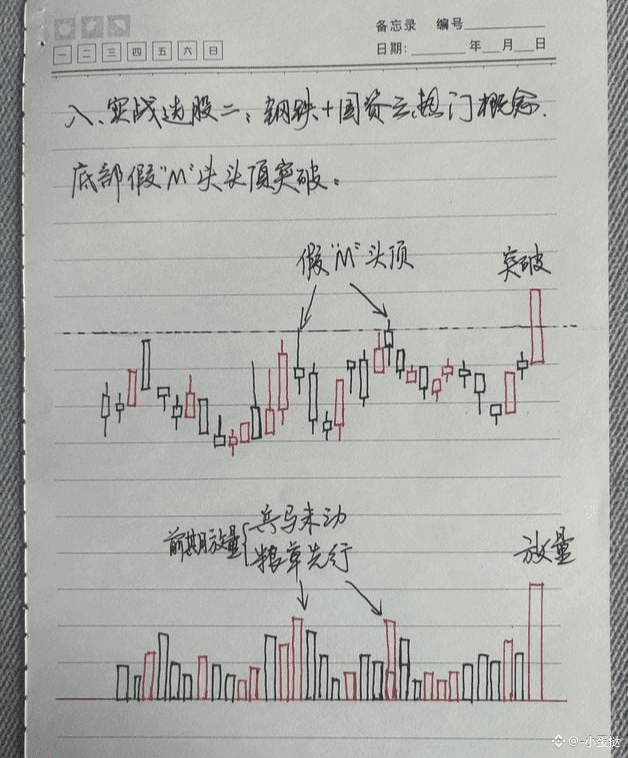 备忘录 编号
一 二 三 四 五 六 日
日期: 年 月 日
八、实战选股二:钢铁+国资云热门概念.
底部假"M"头头顶突破。
假"M"头顶
突破
前期放量{兵马未动
粮草先行
放量
@-小蛋挞